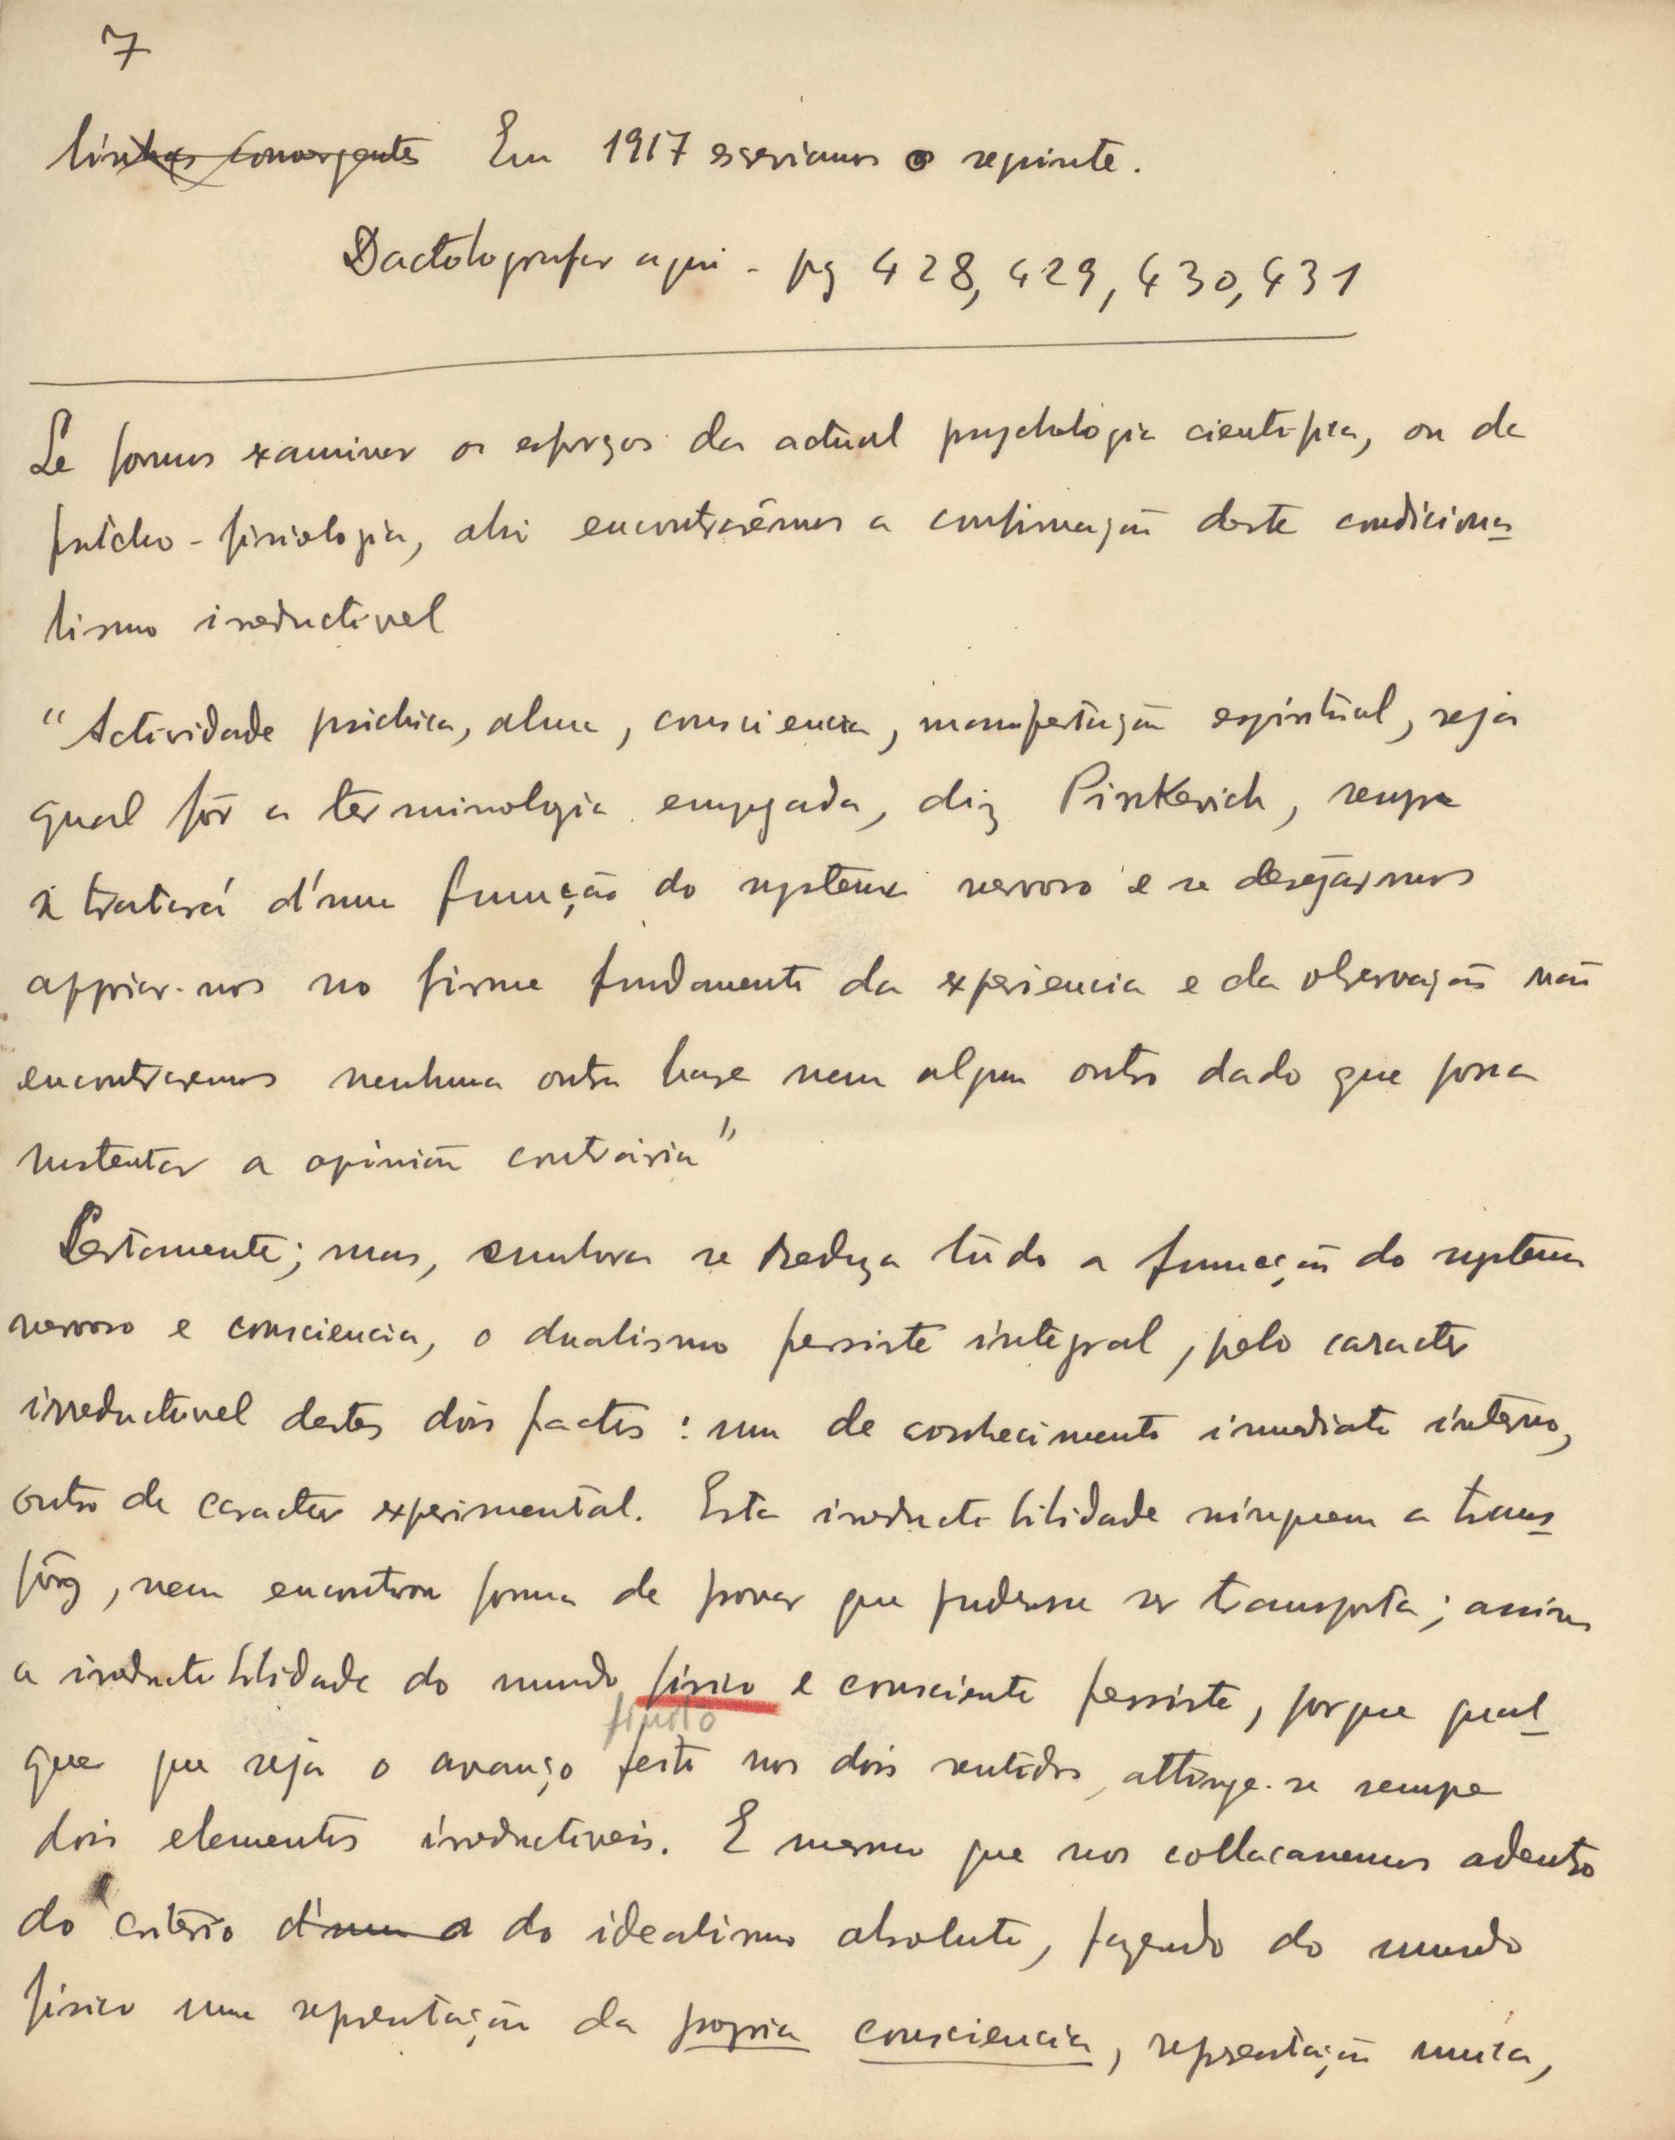 7
linhas convergentes Em 1917 escreviamos o seguinte.
Dactolografar aqui - pg 428, 429, 430, 431
Se formos examinar os esforços da actual psychologia cientifica, ou da
psicho-fisiologia, ahi encontrarêmos a confirmação deste condiciona-
lismo irreductivel
"Actividade psichica, alma, consciencia, manifestação espiritual, seja
qual fôr a terminologia empregada, diz Pinkevich, sempre
se tratará d'uma funcção do systema nervoso e se desejarmos
appoiar-nos no firme fundamento da experiencia e da observação não
encontraremos nenhuma outra base nem algum outro dado que possa
sustentar a opinião contrária"
Certamente; mas, embora se reduza tudo a funcção do systema
nervoso e consciencia, o dualismo persiste integral, pelo caracter
irreductivel destes dois factos: um de conhecimento imediato interno,
outro de caracter experimental. Esta irreductibilidade ninguem a trans-
pôz, nem encontrou forma de provar que pudesse ser transposta; assim
a irreductibilidade do mundo físico e consciente persiste, porque qual-
fisico
quer que seja o avanço feito nos dois sentidos, attinge-se sempre
dois elementos irreductiveis. E mesmo que nos collocassemos adentro
do critério d'uma do idealismo absoluto, fazendo do mundo
físico uma representação da propria consciencia, representação unica,